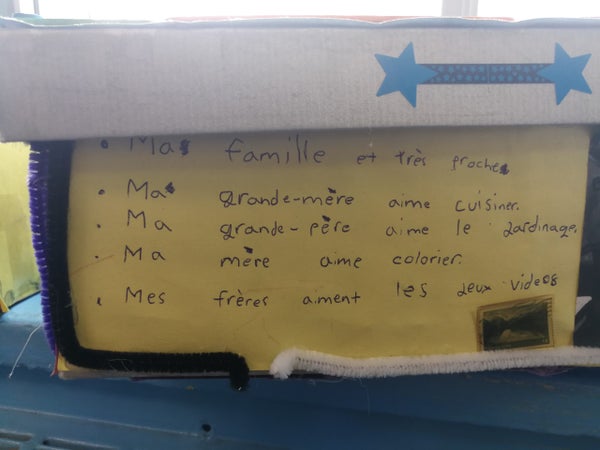 • Ma famille et très proche
• Ma grande-mère aime cuisiner.
• Ma grande-père aime le jardinage.
• Ma mère aime colorier.
• Mes frères aiment les jeux videos